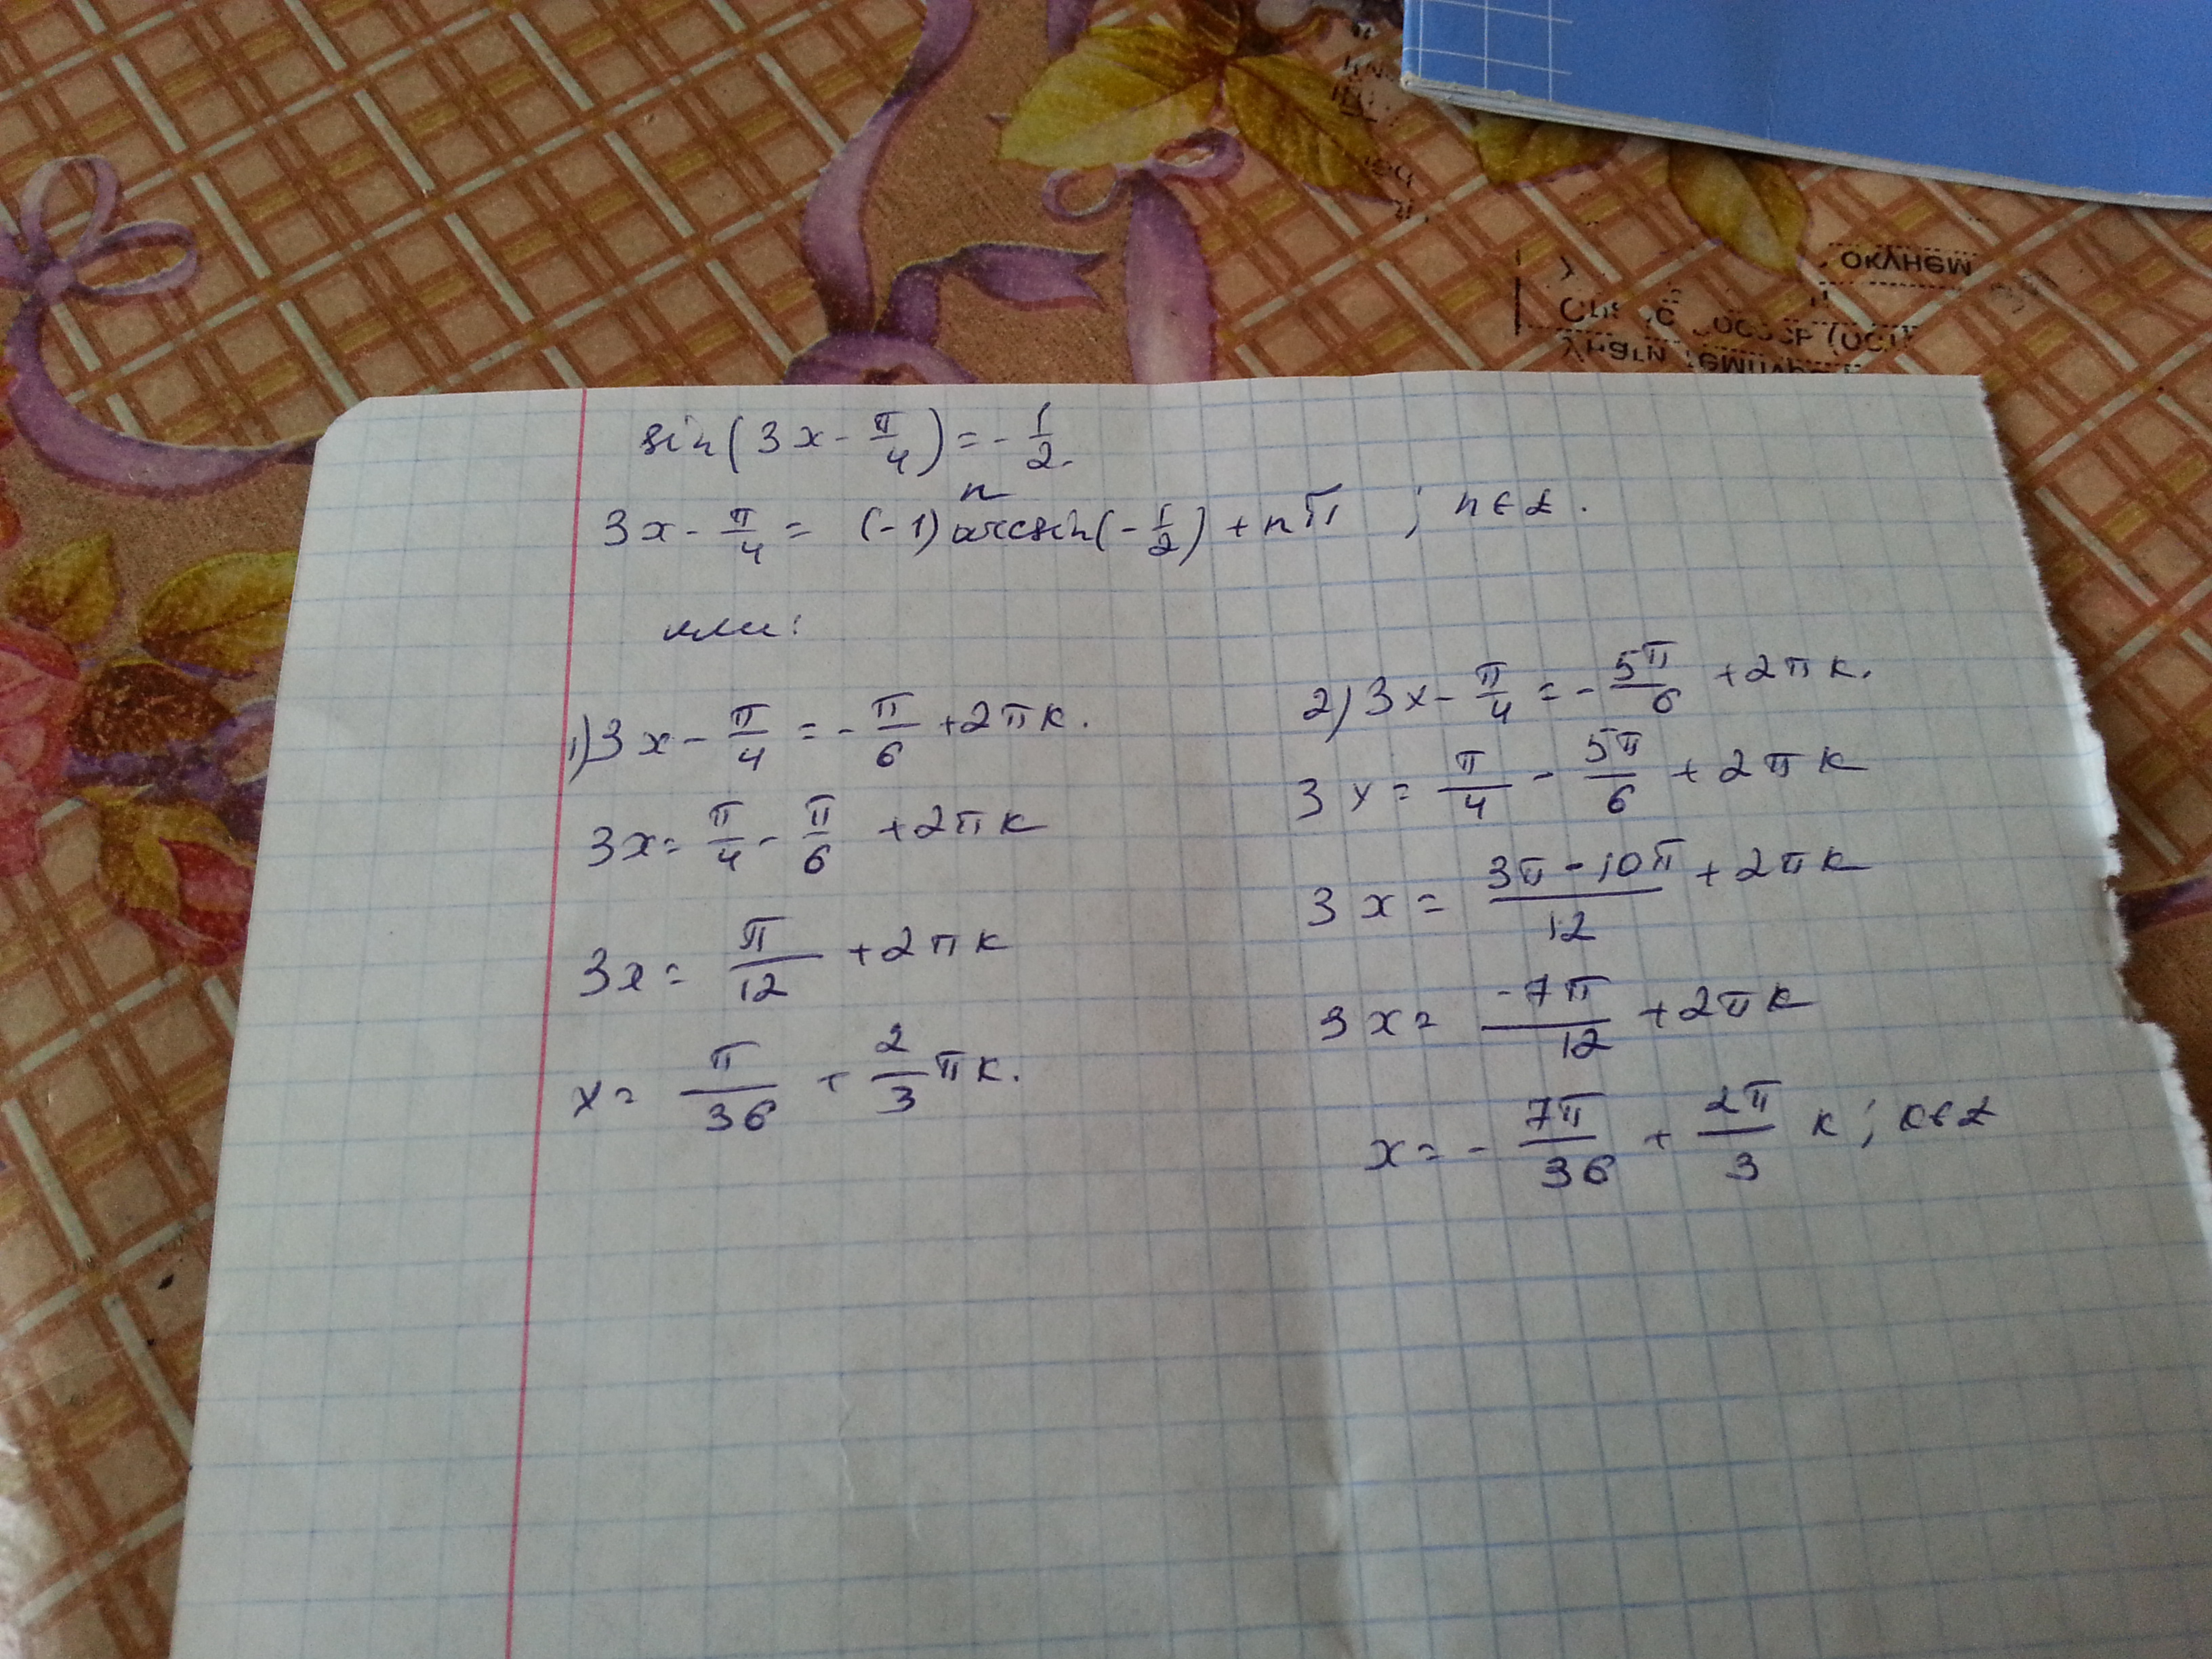 окунем
sin(3x - π/4) = - 1/2.
3x - π/4 = (-1)ⁿ arcsin(- 1/2) + nπ ; n ∈ Z.
или:
1) 3x - π/4 = - π/6 + 2πk.
3x = π/4 - π/6 + 2πk
3x = π/12 + 2πk
x = π/36 + 2/3 πk.
2) 3x - π/4 = - 5π/6 + 2πk.
3x = π/4 - 5π/6 + 2πk
3x = (3π - 10π)/12 + 2πk
3x = -7π/12 + 2πk
x = - 7π/36 + 2π/3 k; k ∈ Z